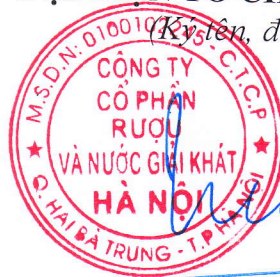 (Ký tên, đ
M.S.D.N: 010010
S - C.T.C.P
CÔNG TY
CỔ PHẦN
RƯỢU
VÀ NƯỚC GIẢI KHÁT
HÀ NỘI
Q. HAI BÀ TRƯNG - T.P HÀ NỘI